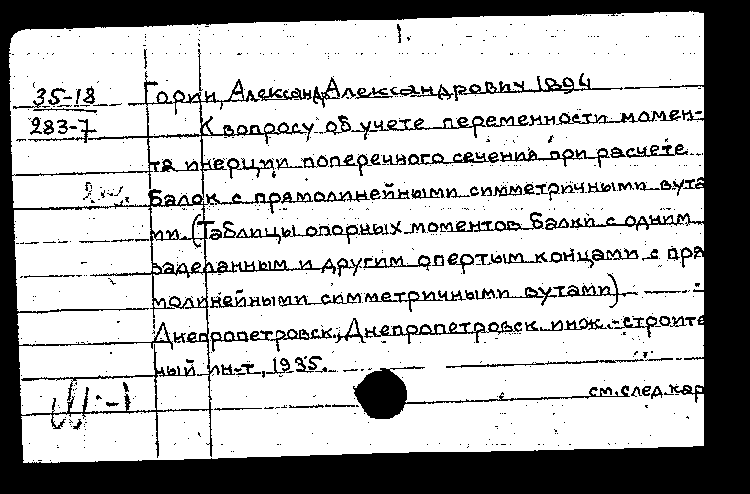 1.
35-18 Горин, Александ Александрович 1894
283-7 К вопросу об учете переменности момен-
та инерции поперечного сечения при расчете
2 экз. балок с прямолинейными симметричными вута
ми. (Таблицы опорных моментов балки с одним
заделанным и другим опертым концами с пря
молинейными симметричными вутами). —
Днепропетровск, Днепропетровск. инж.-строите
ный ин-т, 1935.
см. след. кар